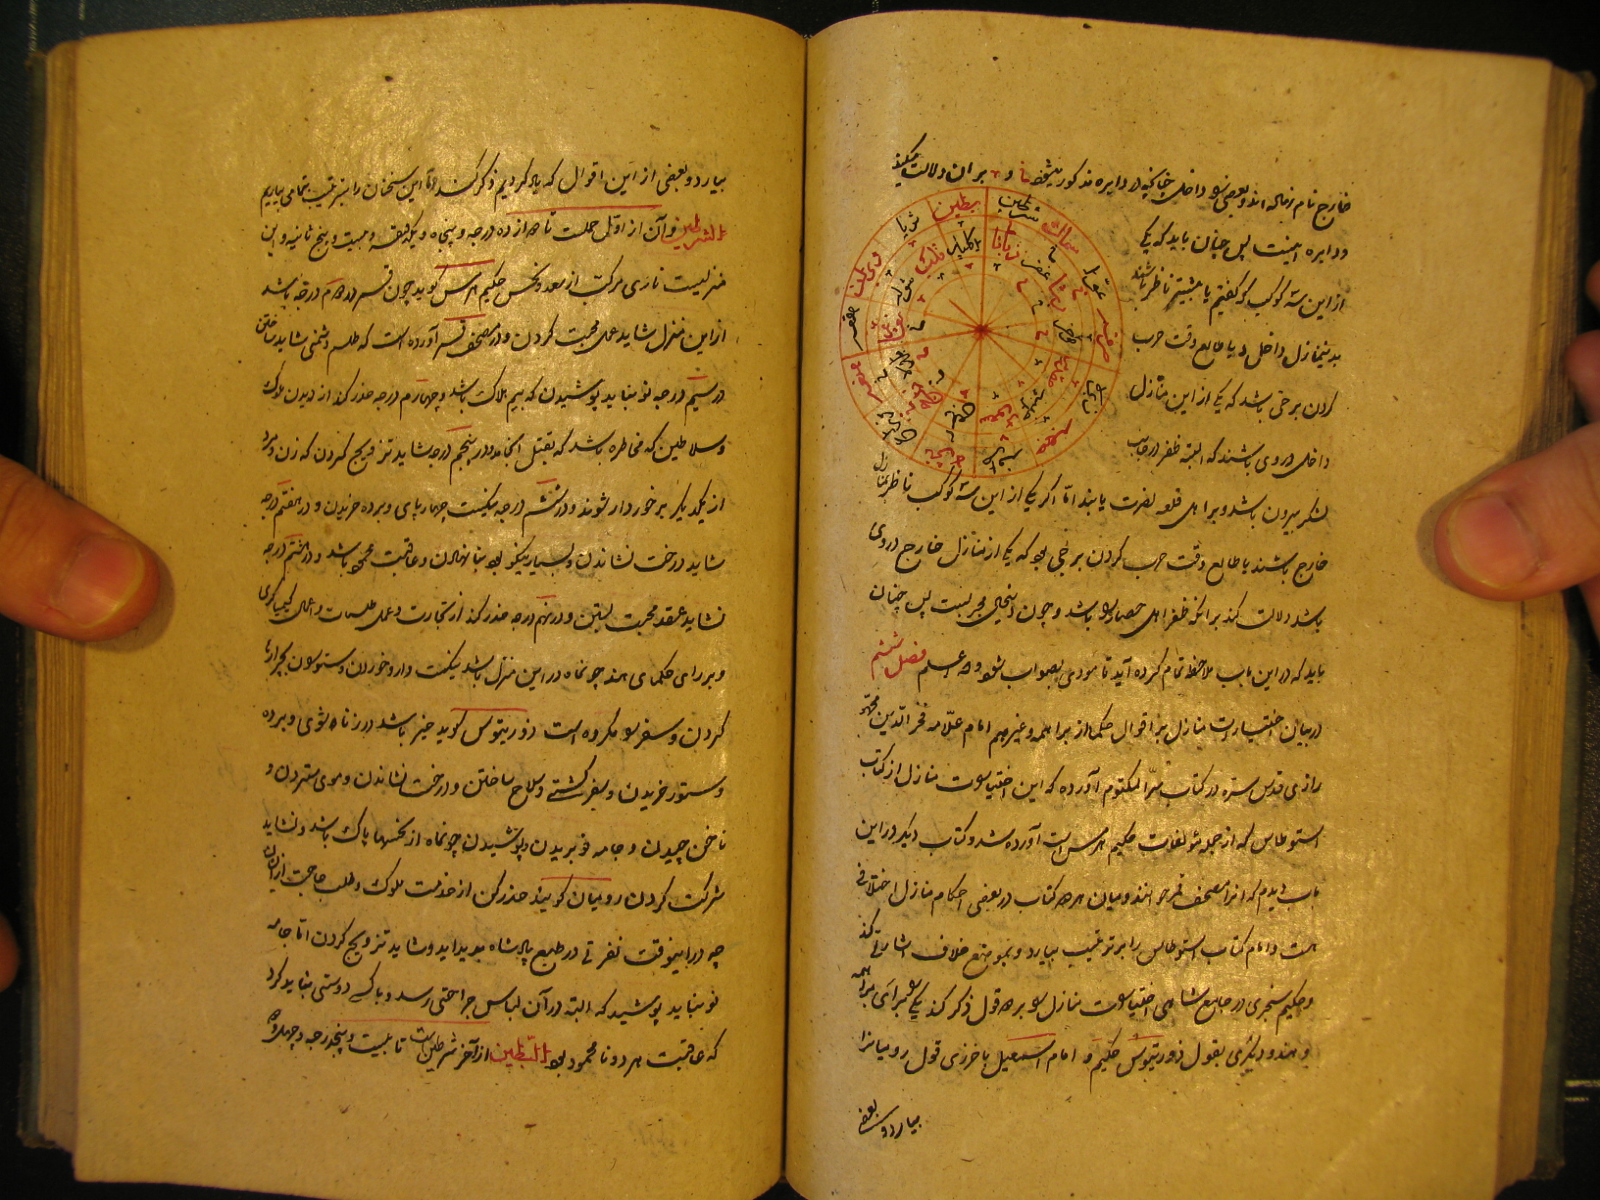 خارج نام نهاده اند و بعضی را داخل چنانکه در دایره مذکور مشخصا و بران دلالت میکند
و دایره اینست پس چنان باید که یکی
از این سه کوکب که گفتیم یا بیشتر ناظر باشند
بدین منازل داخل و یا طالع وقت حرب
کردن برجی باشد که یکی از این منازل
داخل در وی باشند که البته ظفر در جانب
لشکر بیرون باشد و بر اهل قلعه نصرت یابند اما اگر یکی از این سه کوکب ناظر بمنازل
خارج باشند یا طالع وقت حرب کردن برجی بود که یکی از منازل خارج در وی
باشد دلالت کند بر آنکه ظفر اهل حصار را باشد و چون این مجربست پس چنان
باید که در این باب ملاحظه تمام کرده آید تا مودی بصواب شود و الله اعلم فصل ششم
در بیان اختیارات منازل بر اقوال حکما از براهمه و غیرهم امام علامه فخر الدین محمد
رازی قدس سره در کتاب سر المکتوم آورده که این اختیارات منازل از کتاب
اسطوطاس که از جمله مؤلفات حکیم هرمس است آورده شد و کتاب دیگر در این
باب دیدم که انرا مصحف قمر خوانند و میان هر دو کتاب در بعضی احکام منازل اختلافی
هست و امام کتاب اسطوطاس را بر ترتیب بیارد و بموضع خلاف اشارتی کند
و حکیم سنجری در جامع شاهی اختیارات منازل را بر دو قول ذکر کند یکی را برای براهمه
و هند و دیگری بقول ذورثیوس حکیم و امام اسمعیل باخرزی قول رومیانرا
بیارد و بعضی
شرطین
بطین
ثریا
هقعه
سماک
اکلیل
زبانا
غفر
بیارد و بعضی از این اقوال که یاد کردیم ذکر کند اما این سخنان را بترتیب بتمامی بیاریم
الشرطین و آن از اول حملست تا دوازده درجه و پنجاه و یکدقیقه و بیست و پنج ثانیه و این
منزلیست ناری مرکب از سعد و نحس حکیم هرمس گوید چون قمر در دوم درجه باشد
از این منزل شاید عمل محبت کردن و در مصحف قمر آورده است که طلسم دشمنی شاید ساختن
در سیم درجه نو نباید پوشیدن که بیم هلاک باشد و چهارم درجه حذر کند از دیدن ملوک
و سلاطین که مخاطره باشد که بقتل انجامد و در پنجم درجه شاید تزویج کردن که زن و مرد
از یکدیگر برخوردار شوند و در ششم درجه نیکست چهارپای و برده خریدن و در هفتم درجه
شاید درخت نشاندن و بسیار نیکو بود بنا نهادن و عاقبت محمود باشد و در هشتم درجه
نشاید عقد محبت بستن و در نهم درجه حذر کند از تجارت و عمل طلسمات و اعمال کیمیاگری
و بر رای حکمای هند چون ماه در این منزل باشد نیکست دارو خوردن و ستوران بچرا رها
کردن و سفر را مکروه است ذورثیوس گوید خیر باشد در زناشوئی و برده
و ستور خریدن و سفر کشتی و سلاح ساختن و درخت نشاندن و موی ستردن و
ناخن چیدن و جامه نو بریدن و پوشیدن چون ماه از نحسها پاک باشد و نشاید
شرکت کردن رومیان گویند حذر کن از خدمت ملوک و طلب حاجت از ایشان
چه در اینوقت نفرتی در طبع پادشاه پدید اید و شاید تزویج کردن اما جامه
نو نباید پوشید که البته در آن لباس جراحتی رسد و با کسی دوستی نباید کرد
که عاقبت هر دو نامحمود بود البطین از آخر شرطین است تا بیست و پنجدرجه و چهل و دو